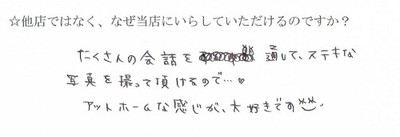 ☆他店ではなく、なぜ当店にいらしていただけるのですか？
たくさんの会話を通して、ステキな
写真を撮って頂けるので…
アットホームな感じが、大好きです